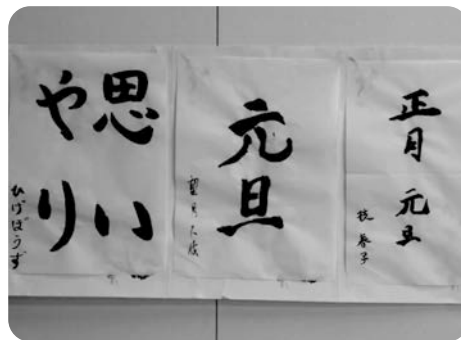 正月 元旦
春子
元旦
望月
思い
やり
ひげぼうず